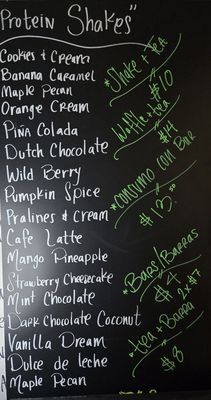 Protein Shakes"
Cookies & Cream
Banana Caramel
Maple Pecan
Orange Cream
Piña Colada
Dutch Chocolate
Wild Berry
Pumpkin Spice
Pralines & Cream
Cafe Latte
Mango Pineapple
Strawberry Cheesecake
Mint Chocolate
Dark Chocolate Coconut
Vanilla Dream
Dulce de leche
Maple Pecan
*Shake + tea
$10
Waffle + tea
$14
*Consumo con Bar
$13.00
*Bars/Barras
$4 2x$7
*tea + Barra
$8